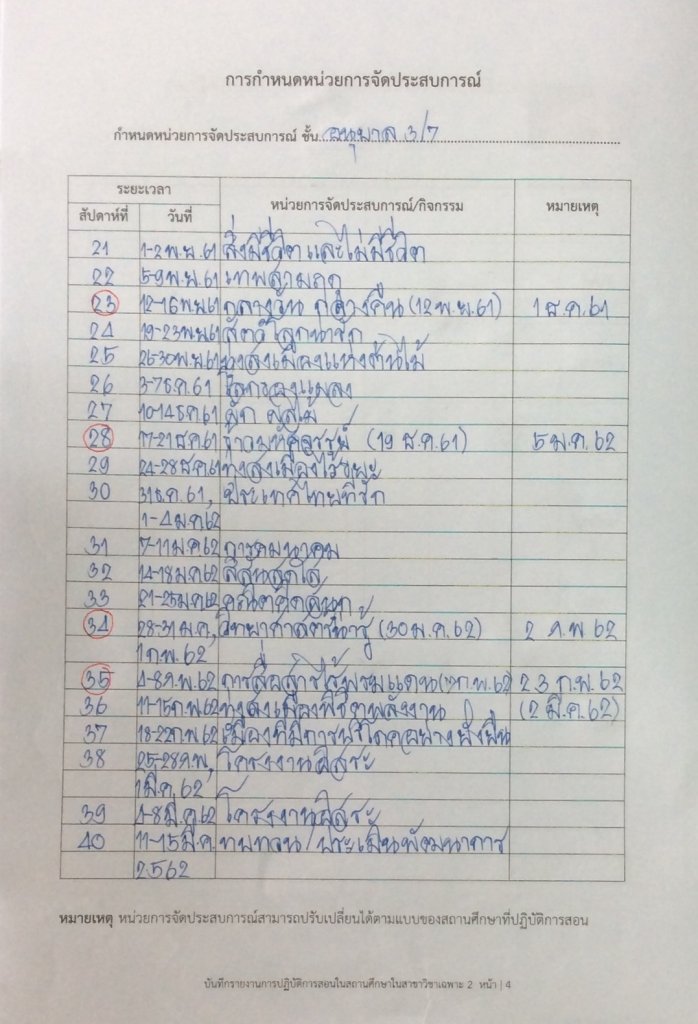 การกำหนดหน่วยการจัดประสบการณ์
กำหนดหน่วยการจัดประสบการณ์ ชั้น อนุบาล 3/7
ระยะเวลา
หน่วยการจัดประสบการณ์/กิจกรรม หมายเหตุ
สัปดาห์ที่ วันที่
21 1-2 พ.ย. 61 สิ่งมีชีวิต และไม่มีชีวิต
22 5-9 พ.ย. 61 เทพสามฤดู
23 12-16 พ.ย. 61 กลางวัน กลางคืน (12 พ.ย. 61) 1 ธ.ค. 61
24 19-23 พ.ย. 61 สัตว์โลกน่ารัก
25 26-30 พ.ย. 61 เมืองแห่งต้นไม้
26 3-7 ธ.ค. 61 โลกของแมลง
27 10-14 ธ.ค. 61 ผัก ผลไม้
28 17-21 ธ.ค. 61 (19 ธ.ค. 61) 5 ม.ค. 62
29 24-28 ธ.ค. 61 เมืองไร้ขยะ
30 31 ธ.ค. 61, ประเทศไทยที่รัก
1-4 ม.ค. 62
31 7-11 ม.ค. 62 การคมนาคม
32 14-18 ม.ค. 62 สีสันสดใส
33 21-25 ม.ค. 62 คณิตคิดสนุก
34 28-31 ม.ค., วิทยาศาสตร์น่ารู้ (30 ม.ค. 62) 2 ก.พ. 62
1 ก.พ. 62
35 4-8 ก.พ. 62 การสื่อสารไร้พรมแดน 23 ก.พ. 62
36 11-15 ก.พ. 62 เมืองพิชิตพลังงาน (2 มี.ค. 62)
37 18-22 ก.พ. 62 เมืองที่มีการบริโภคอย่างยั่งยืน
38 25-28 ก.พ., โครงงานอิสระ
1 มี.ค. 62
39 4-8 มี.ค. 62 โครงงานอิสระ
40 11-15 มี.ค. ทบทวน / ประเมินพัฒนาการ
2562
หมายเหตุ หน่วยการจัดประสบการณ์สามารถปรับเปลี่ยนได้ตามแบบของสถานศึกษาที่ปฏิบัติการสอน
บันทึกรายงานการปฏิบัติการสอนในสถานศึกษาในสาขาวิชาเฉพาะ 2 หน้า | 4